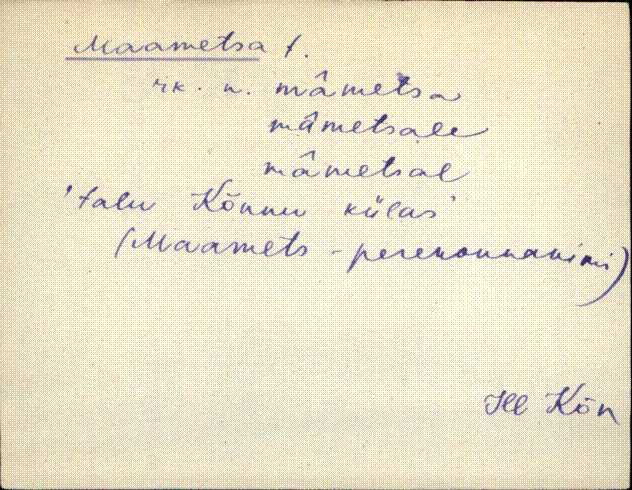 Maametsa t.
rk. n. mâmetsa
mâmetsale
mâmetsal
'talu Kõnnu külas'
(Maamets - perekonnanimi)
Jll Kõn